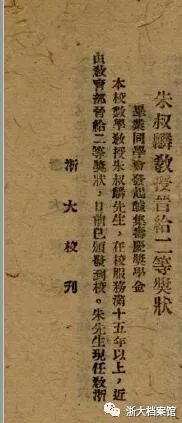 朱叔麟敎授晉給二等獎狀
畢業同學會發起醵集壽慶獎學金
本校數學敎授朱叔麟先生，在校服務滿十五年以上，近
由敎育部晉給二等獎狀，日前已頒發到校。朱先生現任敎浙
浙大校刊
浙大档案馆